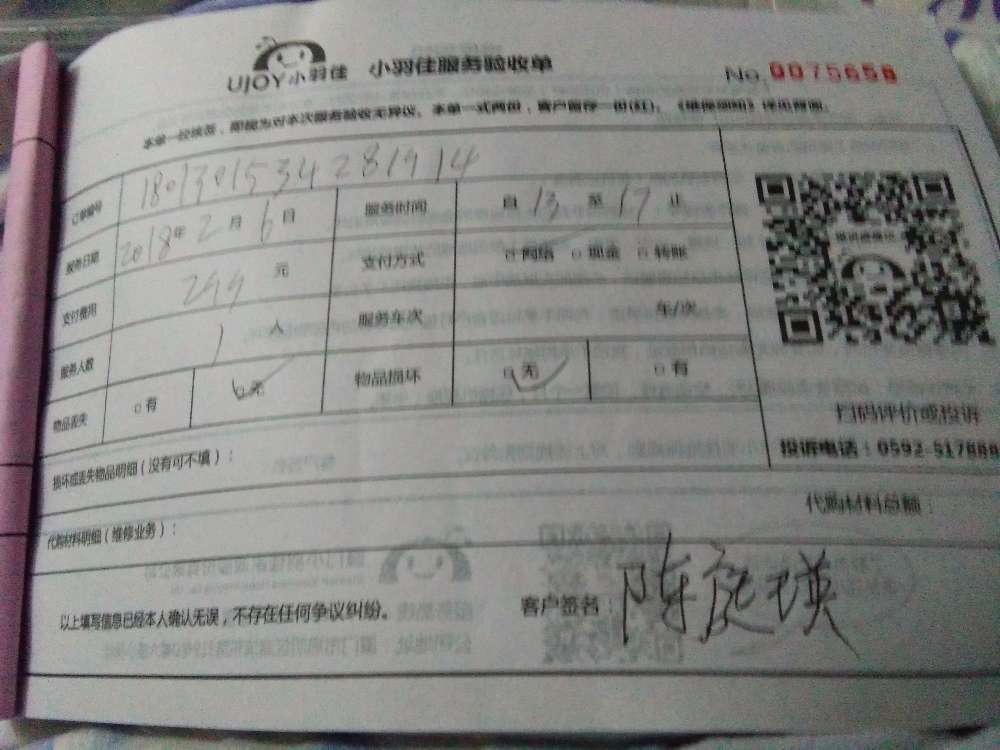 UJOY小羽佳 小羽佳服务验收单 No. 0075658
本单一经续签，即视为对本次服务验收无异议。本单一式两份，客户留存一份(红)。《维修细则》详见背面。
订单编号 180130153428 1914
服务日期 2018年2月6日 服务时间 自13至17止
支付费用 299元 支付方式 □网络 □现金 □转账
服务人数 1人 服务车次 车/次
物品丢失 □有 □无 物品损坏 □无 □有
扫码评价或投诉
投诉电话：0592-517888
损坏或丢失物品明细（没有可不填）：
代购材料总额：
代购材料明细（维修业务）：
以上填写信息已经本人确认无误，不存在任何争议纠纷。 客户签名：陈庭瑛